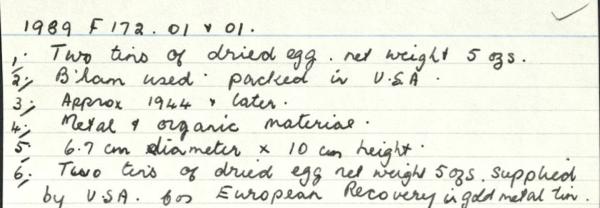 1989 F 172. 01 & 01.
1. Two tins of dried egg. net weight 5 ozs.
2. B'ham used. packed in U.S.A.
3. Approx 1944 & later.
4. Metal & organic material.
5. 6.7 cm diameter x 10 cm height.
6. Two tins of dried egg net weight 5 ozs. supplied
by U.S.A. for European Recovery in gold metal tin.